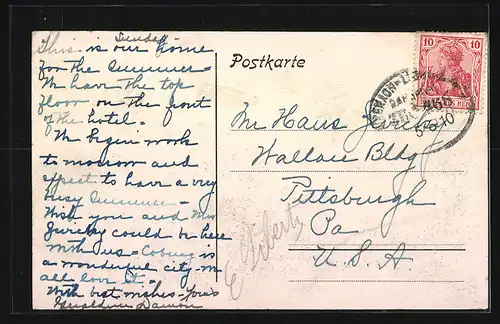 Sunday
This is our home
for the Summer -
We have the top
floor on the front
of the hotel.
We begin work
to morrow and
expect to have a very
busy Summer -
Wish you and Mrs
could be here
with us - Coburg is
a wonderful city - we
all love it -
With best wishes - Yours
Geraldine Damon
Postkarte
Mr Hans
Wallace Bldg
Pittsburgh
Pa
U.S.A.
E Liberty
10 10